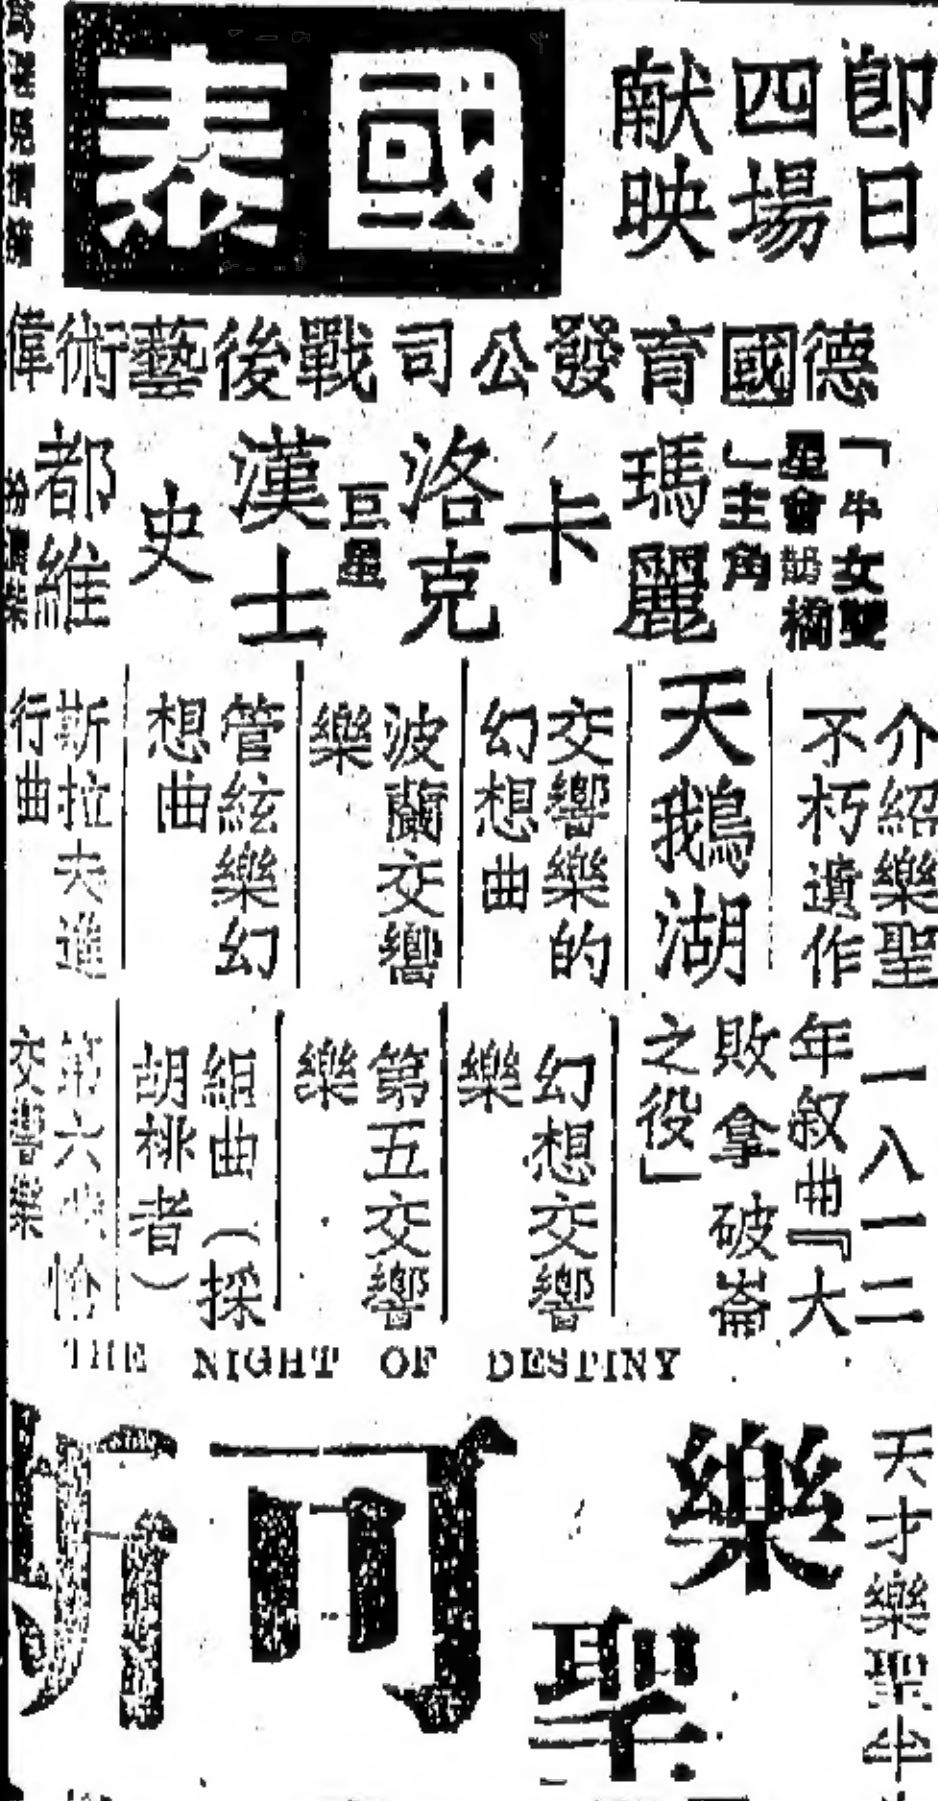 即日
四場
献映
國泰
德國育發公司戰後藝術偉
「牛女雙
星會鵲橋
」主角
瑪麗
卡
洛克
巨星
漢士
史
都維
介紹樂聖
不朽遺作
天鵝湖
交響樂的
幻想曲
波蘭交響
樂
管絃樂幻
想曲
斯拉夫進
行曲
一八一二
年叙曲『大
敗拿破崙
之役」
幻想交響
樂
第五交響
樂
組曲（採
胡桃者）
第六
交響樂
THE NIGHT OF DESTINY
天才樂聖半
樂聖
可